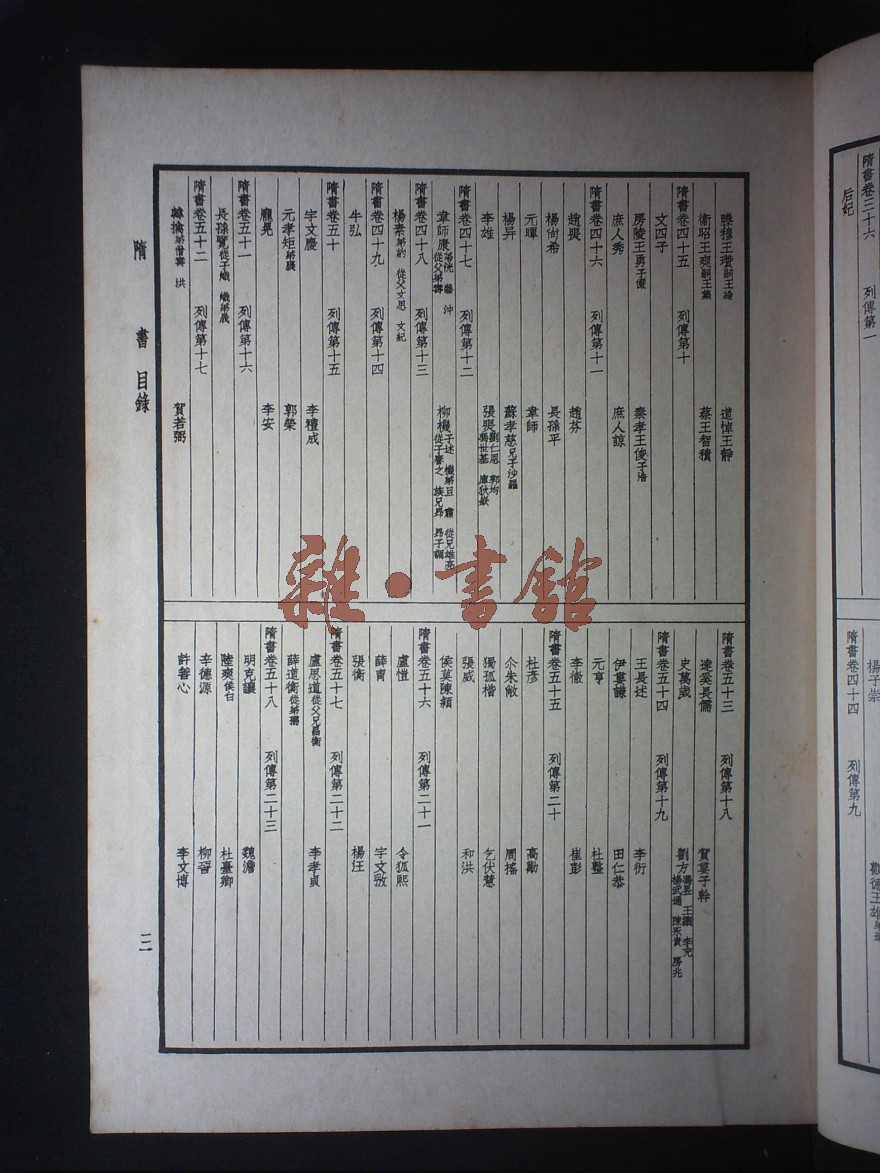 滕穆王瓚嗣王綸　道悼王靜
衞昭王爽嗣王集　蔡王智積
隋書卷四十五　列傳第十
文四子
房陵王勇子儼　秦孝王俊子浩
庶人秀　庶人諒
隋書卷四十六　列傳第十一
趙煚　趙芬
楊尚希　長孫平
元暉　韋師
楊异　蘇孝慈兄子沙羅
李雄　張煚劉仁恩　郭均　馮世基　庫狄嶔
隋書卷四十七　列傳第十二
韋師康弟洸　藝　沖　從父弟壽　柳機子述　機弟旦　肅　從兄雄亮　從子謇之　族兄昂　昂子調
隋書卷四十八　列傳第十三
楊素弟約　從父文思　文紀
隋書卷四十九　列傳第十四
牛弘
隋書卷五十　列傳第十五
宇文慶　李禮成
元孝矩弟褒　郭榮
龐晃　李安
隋書卷五十一　列傳第十六
長孫覽從子熾　熾弟晟
隋書卷五十二　列傳第十七
韓擒弟僧壽　洪　賀若弼
隋書卷五十三　列傳第十八
達奚長儒　賀婁子幹
史萬歲　劉方馮昱　王㯹　李充　楊武通　陳永貴　房兆
隋書卷五十四　列傳第十九
王長述　李衍
伊婁謙　田仁恭
元亨　杜整
李徹　崔彭
隋書卷五十五　列傳第二十
杜彥　高勱
尒朱敞　周搖
獨孤楷　乞伏慧
張威　和洪
侯莫陳穎
隋書卷五十六　列傳第二十一
盧愷　令狐熙
薛冑　宇文㢸
張衡　楊汪
隋書卷五十七　列傳第二十二
盧思道從父兄昌衡　李孝貞
薛道衡從弟孺
隋書卷五十八　列傳第二十三
明克讓　魏澹
陸爽侯白　杜臺卿
辛德源　柳䛒
許善心　李文博
隋　書　目錄　三
隋書卷三十六　列傳第一
后妃
楊子崇　觀德王雄
隋書卷四十四　列傳第九
雜·書館